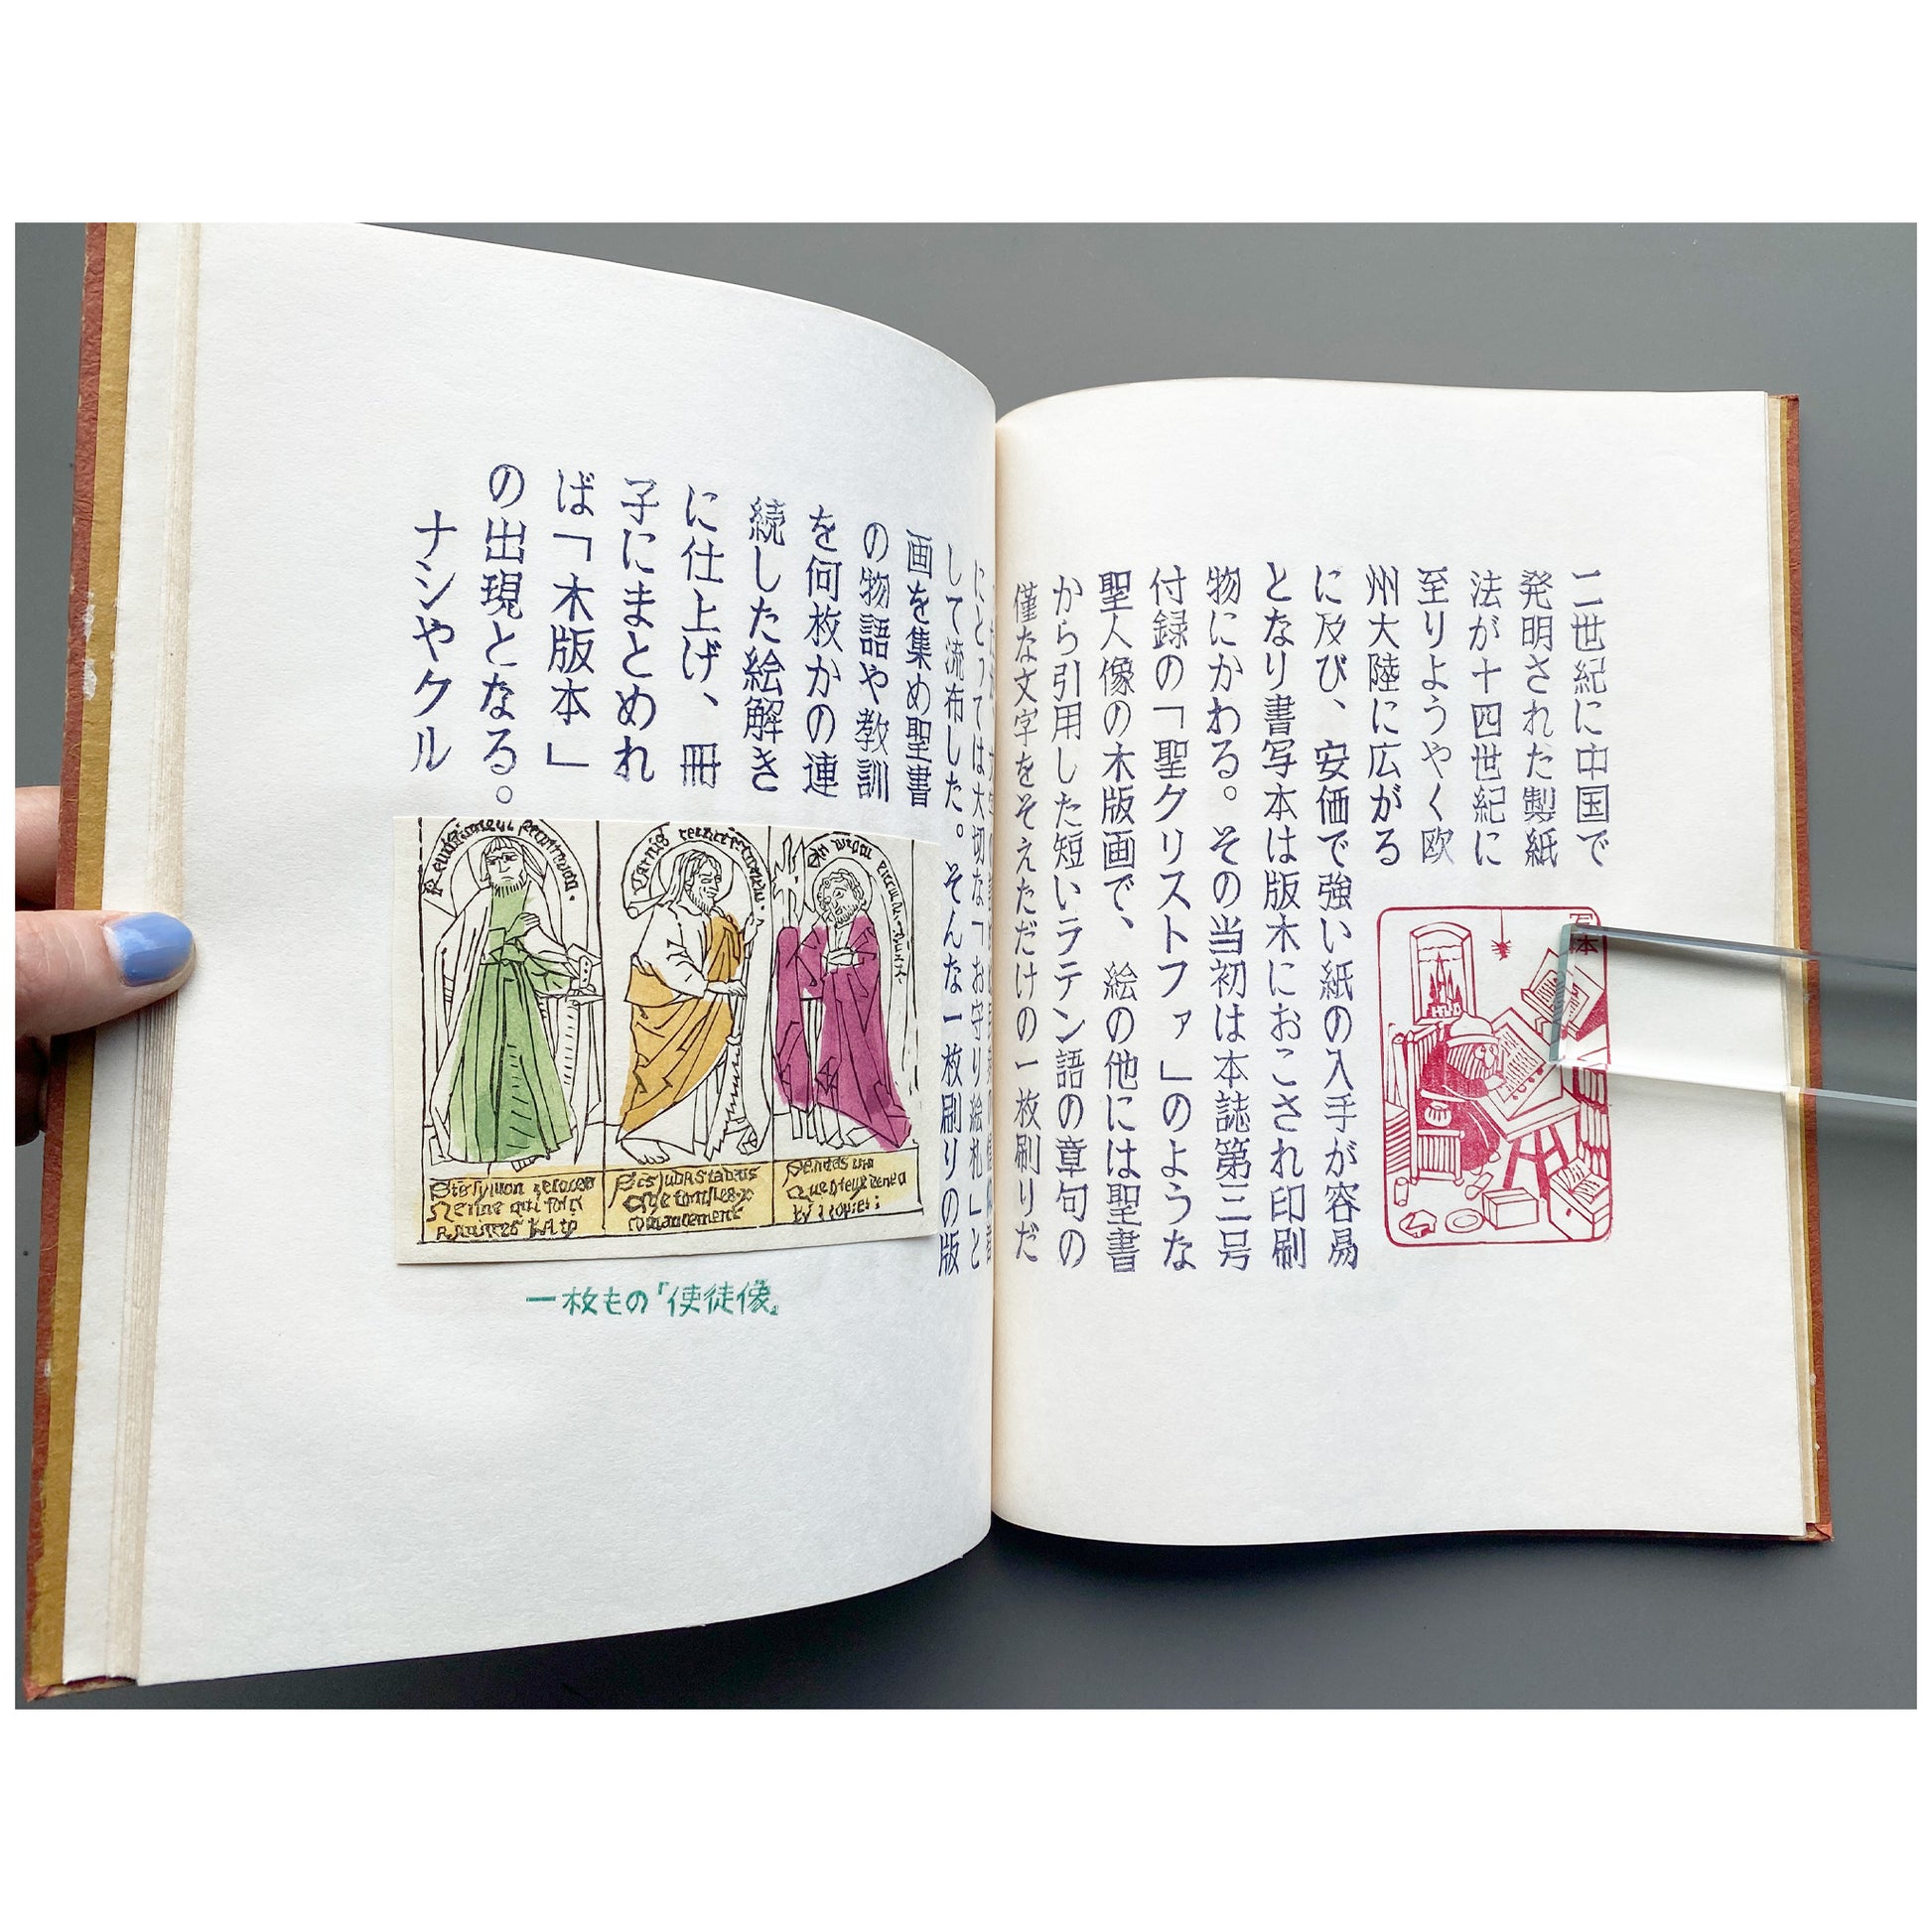 二世紀に中国で
発明された製紙
法が十四世紀に
至りようやく欧
州大陸に広がる
に及び、安価で強い紙の入手が容易
となり書写本は版木におこされ印刷
物にかわる。その当初は本誌第三号
付録の「聖クリストファ」のような
聖人像の木版画で、絵の他には聖書
から引用した短いラテン語の章句の
僅な文字をそえただけの一枚刷りだ
写本
にとっては大切な「お守り絵札」と
して流布した。そんな一枚刷りの版
画を集め聖書
の物語や教訓
を何枚かの連
続した絵解き
に仕上げ、冊
子にまとめれ
ば「木版本」
の出現となる。
ナシやクル
一枚もの『使徒像』